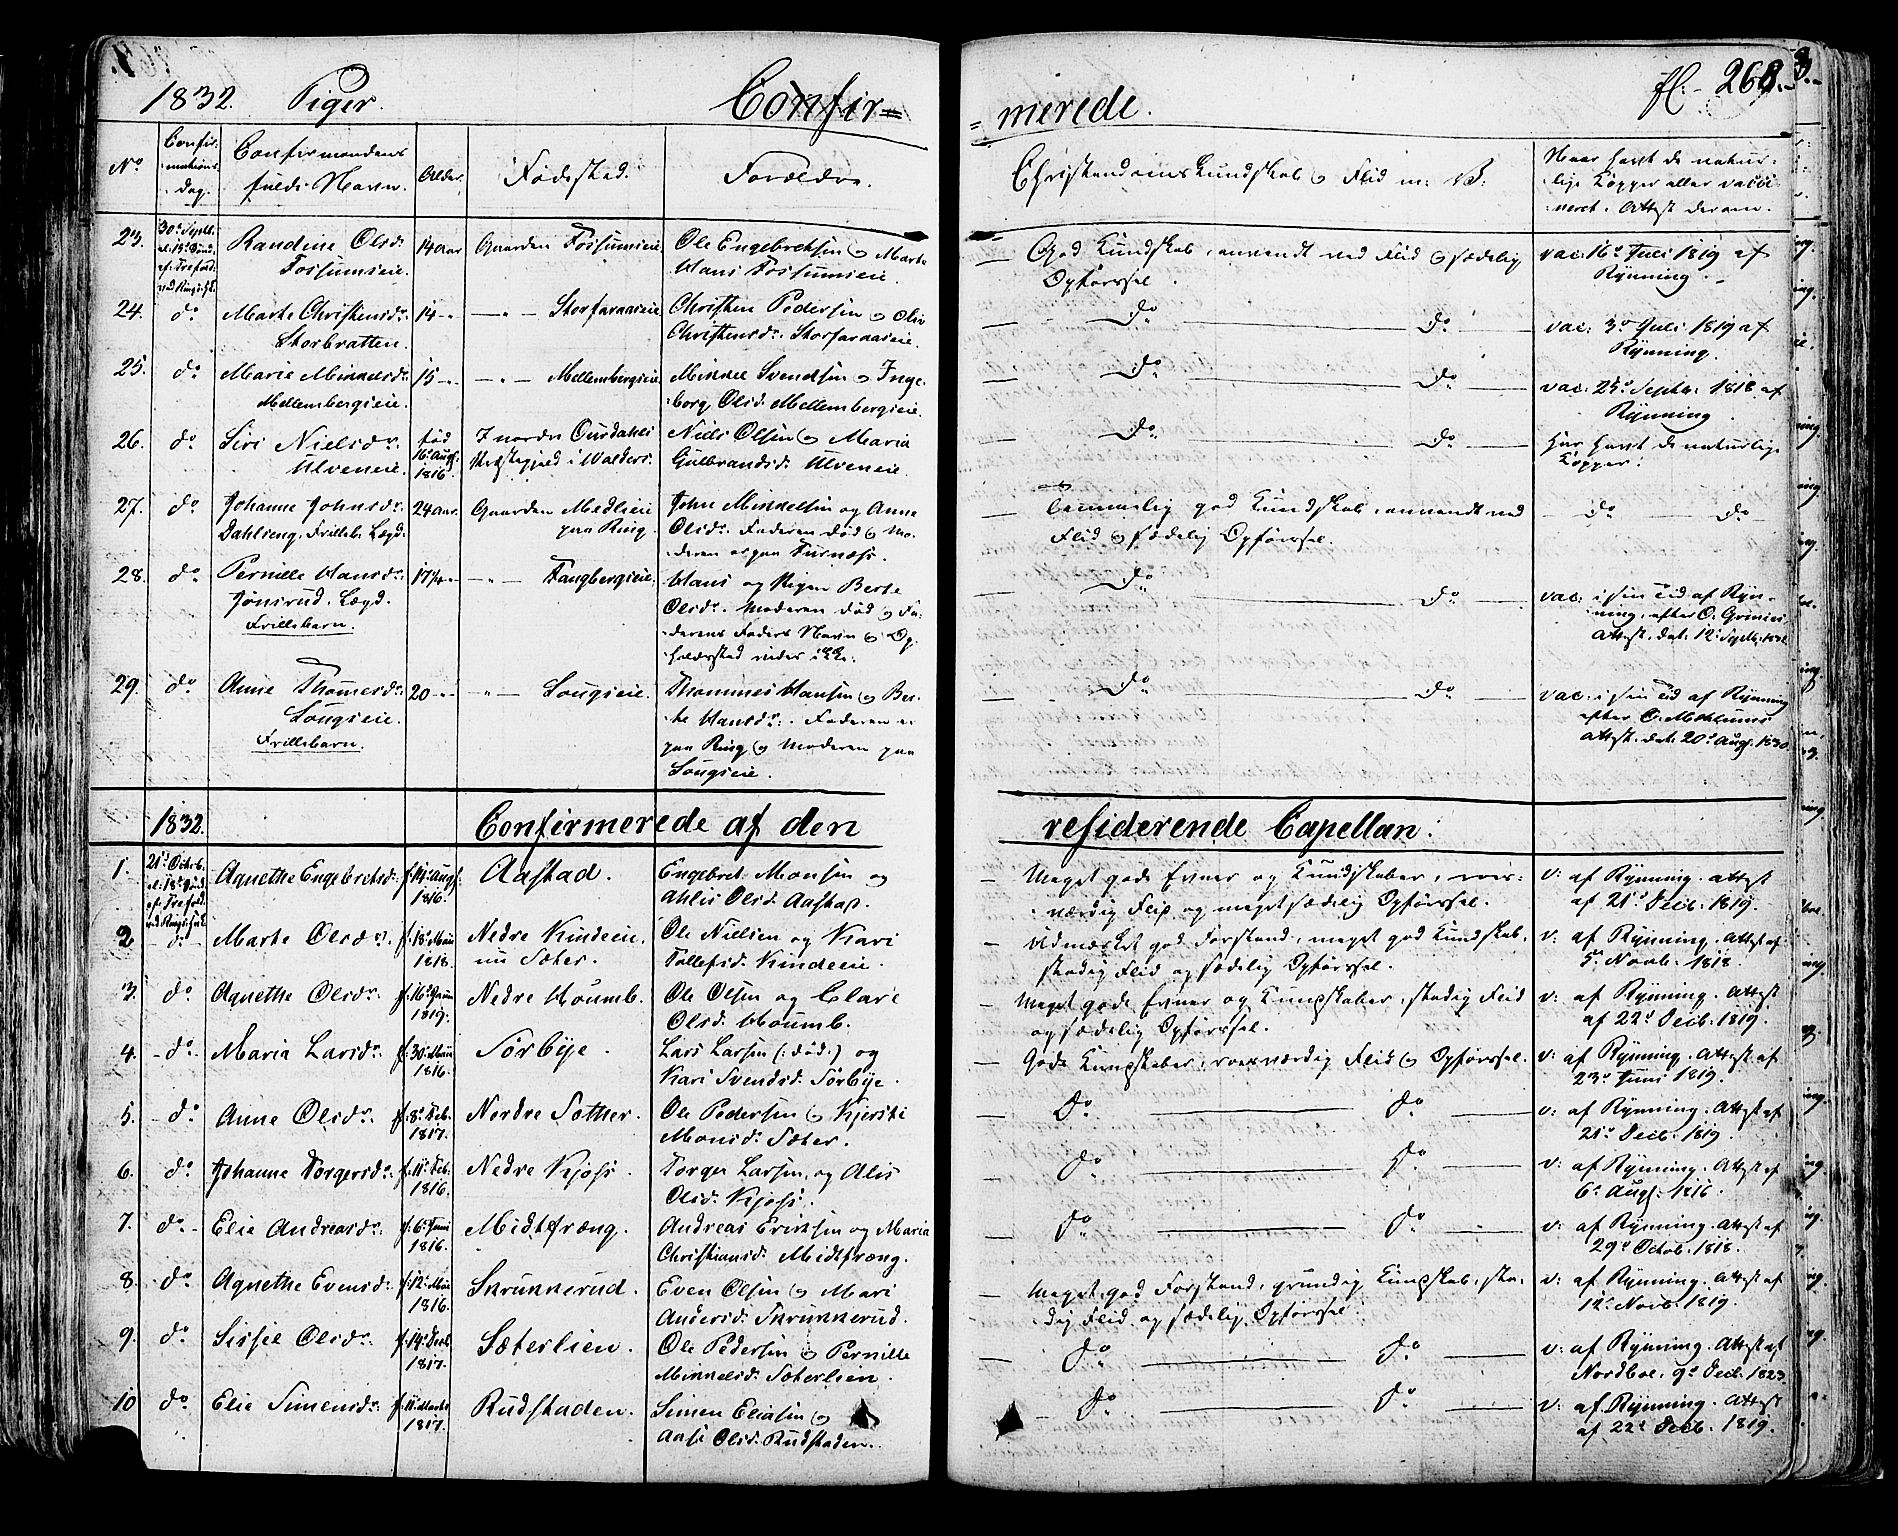 1832. Piger. Confir=
= merede. fl. 268.
No
Confir-
mations
Dag.
Confirmandens
fulde Navn.
Alder.
Fødested.
Forældre.
Christendoms Kundskab og Flid m: V:
Naar havt de natur-
lige Kopper eller vacci-
neret. Attest derom.
23. 30te Septb.
Randine Olsdr
Fossumseie.
14 aar
Gaarden Fossumseie
Ole Engebretsen og Marte
Hans Fossumseie
God Kundskab, anvendt ved Flid og sædelig
Opførsel.
vac: 16de Juli 1819 af
Rynning.
24. do
Marte Christensdr
Storbratten.
14 -"-
-"- Storfaraaseie
Christen Pedersen og Oliv
Christensdr Storfaraaseie.
do do
vac: 3de Juli 1819 af
Rynning.
25. do
Marie Mikkelsdr
Mellembergseie.
15 -"-
-"- Mellembergseie
Mikkel Svendsen og Inge-
borg Olsd: Mellembergseie.
do do
vac: 25de Septbr. 1818 af
Rynning.
26. do
Siri Nielsdr
Ulveneie.
fød
16de Aug:
1816.
I nordre Ourdahls
Præstegjeld i Walders.
Niels Olsen og Maria
Gulbrandsd: Ulveneie.
do do
Har havt de naturlige
Kopper.
27. do
Johanne Johnsdr
Dahlseng. Frilleb. Lægd.
24 aar.
Gaarden Medlieie
paa Ring.
John Mikkelsen og Anne
Olsdr. Faderen død og Mo-
deren er paa Furnæs.
Temmelig god Kundskab, anvendt ved
Flid og sædelig Opførsel.
do do
28. do
Pernille Hansdr
Jønsrud. Lægd.
Frillebarn.
17¼ -"-
-"- Fangbergseie.
Hans og Pigen Berte
Olsdr. Moderen død og Fa-
derens Faders Navn og Op-
holdssted vides ikke.
do do
vac: i sin Tid af Ryn-
ning, efter O. Grinies
Attest. dat. 12te Septb. 1832
29. do
Anne Thomesdr
Sougseie.
Frillebarn.
20 -"-
-"- Sougseie.
Thommes Hansen og Ber-
te Hansdr. Faderen er
paa Ring og Moderen paa
Sougseie.
do do
vac: i sin Tid af Rynning
efter O. Mehlums
Attest. dat. 20de Aug: 1830.
1832. Confirmerede af den
residerende Capellan:
1. 21de Octob.
Agnethe Engebretsd:
f. 14de Aug:
1816.
Aastad.
Engebret Monsen og
Ahlis Olsd: Aastad.
Meget gode Evner og Kundskaber, roes-
værdig Flid og meget sædelig Opførsel.
v: af Rynning. Attest
af 21de Decb. 1819.
2 do
Marte Olsdr.
f. 13de Mai
1818.
Nedre Kindeeie.
nu Sæter.
Ole Nielsen og Kari
Tollefsd: Kindeeie.
Udmærket god Forstand, meget god Kundskab,
stadig Flid og sædelig Opførsel.
v: af Rynning. Attest af
5te Novb. 1818.
3. do
Agnethe Olsdr.
1819.
Nedre Houmb.
Ole Olsen og Clari
Olsd: Houmb.
Meget gode Evner og Kundskaber, stadig Flid
og sædelig Opførsel.
v: af Rynning. Attest
af 22de Decb. 1819.
4. do
Maria Larsdr.
f. 30te Mai
1816.
Sørbye.
Lars Larsen (: død :) og
Kari Svendsd: Sørbye.
Gode Kundskaber, roesværdig Flid og Opførsel.
v: af Rynning. Attest af
23de Juni 1819.
5. do
Anne Olsdr.
f. 8de Feb.
1817.
Nordre Sæther.
Ole Pedersen og Kjersti
Monsd: Sæter.
do do
v: af Rynning. Attest af
21de Decb. 1819.
6. do
Johanne Torgersdr.
f. 11te Feb.
1816.
Nedre Kjos.
Torger Larsen, og Alis
Olsd: Kjos.
do do
v: af Rynning. Attest af
6te Aug: 1816.
7. do
Elie Andreasdr.
f. 6te Juni
1816.
Midtfræng.
Andreas Eriksen og Maria
Christiansd: Midtfræng.
do do
v: af Rynning. Attest af
29de Octob. 1818.
8. do
Agnethe Evensd:
f. 12te Mai
1816.
Skrukkerud.
Even Olsen og Mari
Andersd: Skrukkerud.
Meget god Forstand, grundig Kundskab, sta-
dig Flid og sædelig Opførsel.
v: af Rynning. Attest af
12te Novb. 1819.
9. do
Sissel Olsdr.
1817.
Sæterlien.
Ole Pedersen og Pernille
Mikkelsd: Sæterlien.
do do
v: af Rynning. Attest af
Nordboe. 9de Decb. 1823.
10 do
Elie Simensdr.
f. 11te Marts
1817.
Rudstaden.
Simen Eliasen og
Aase Olsd: Rudstaden.
do do
v: af Rynning. Attest
af 22de Decb. 1819.